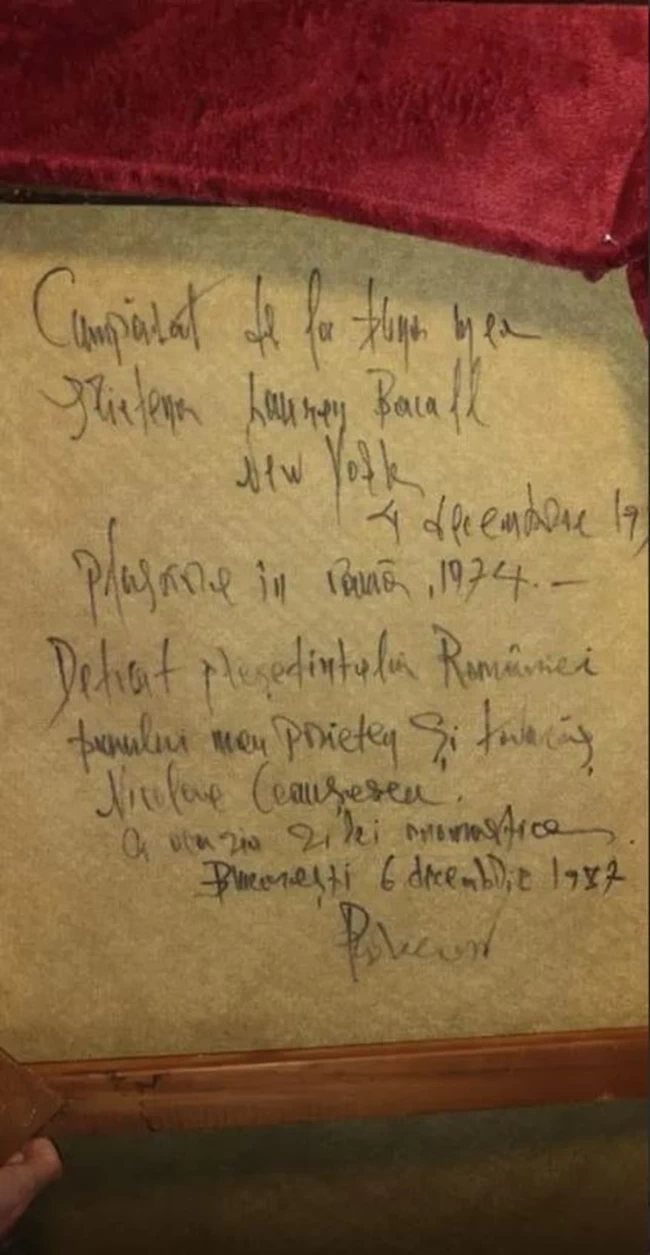 Cumpărat de la buna mea
prietena Lauren Bacall
New York
4 decembrie 19
în ramă, 1974. —
Deticat președintelui României
bunului meu prieten și
Nicolae Ceaușescu.
zilei onomastice.
București 6 decembrie 1987